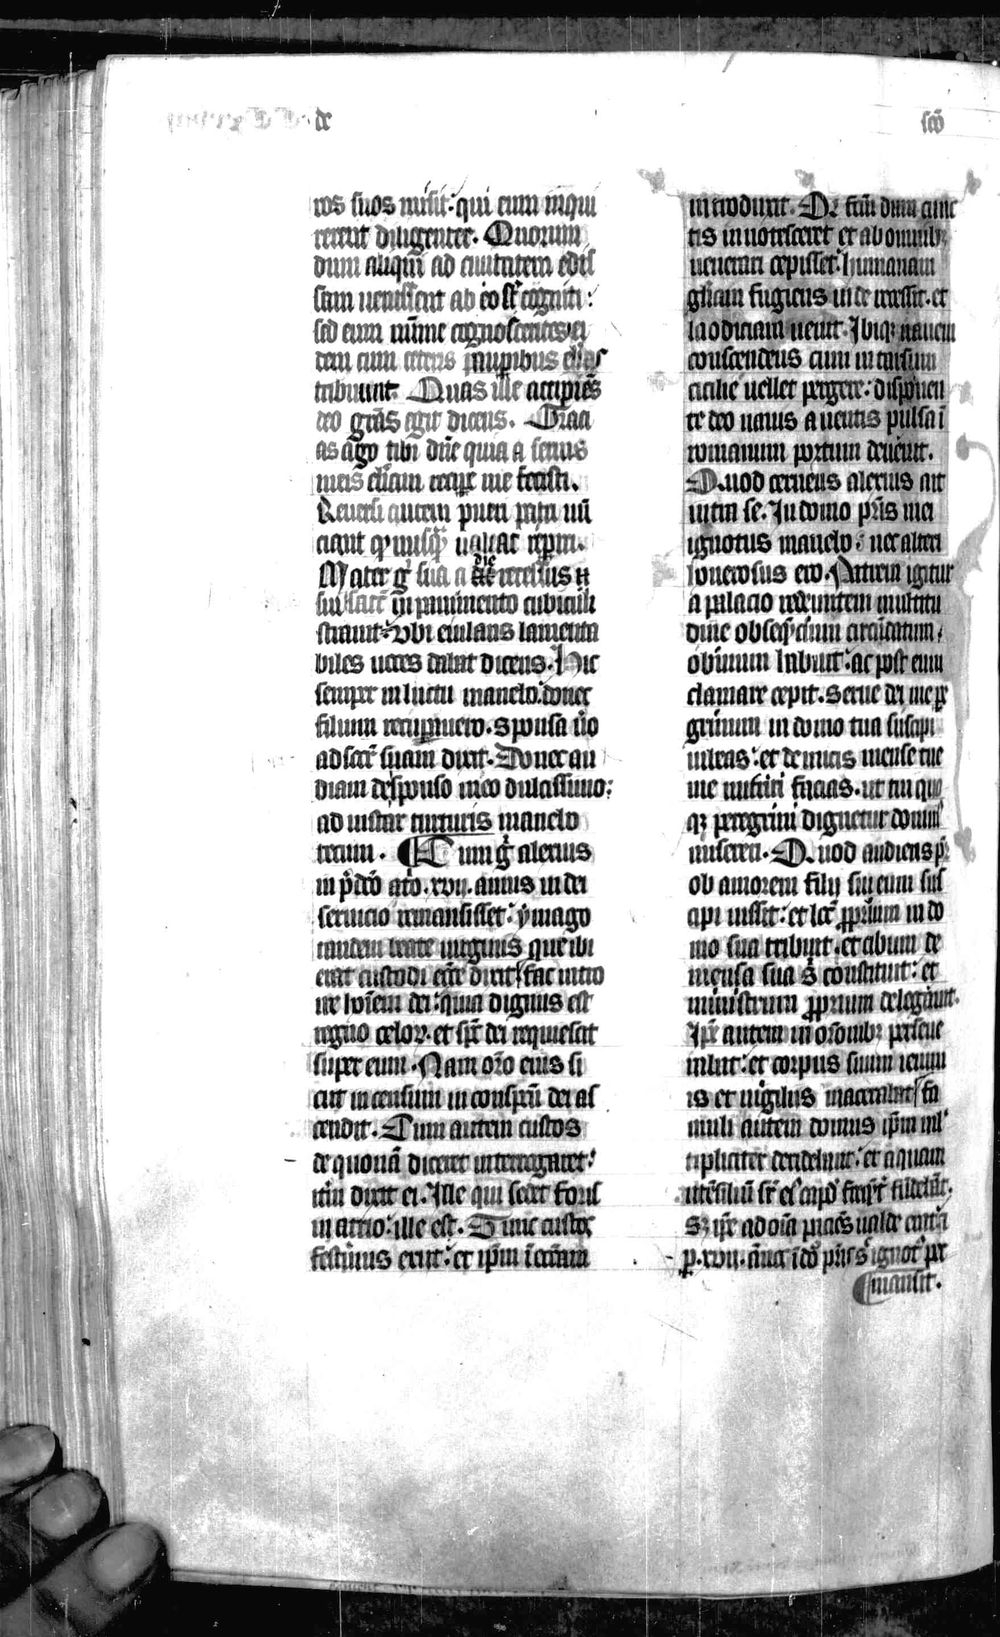 de
scō
ros suos misit: qui eum inqui
rerent diligenter. Quorum
dum aliqui ad ciuitatem edis
sam uenissent ab eo st̄ cogniti:
sed eum mīme cognoscentes ei
dem cum ceteris pauperibus elias
tribuunt. Quas ille accipiēs
deo grās egit dicens. Graci
as ago tibi dn̄e quia a seruis
meis el̄iam recipe me fecisti.
Reuersi autem pueri patri nū
ciant qꝫ nusq̄ ualeat reperiri.
Mater g̊ sua a die recessus ei
sui saccū in pauimento cubiculi
strauit: Vbi eiulans lamenta
biles uoces dabat dicens. Hic
semper in luctu manebo: donec
filium recuperauero. Sponsa ūo
ad socr̄ suam dixit. Donec au
diam de sponso meo dulcissimo:
ad instar turturis manebo
tecum. Cum g̊ alexius
in p̄dcō at'o .xvii. annis in dei
seruicio remansisset: ymago
tandem beate uirginis que ibi
erat custodi ecc̄e dixit fac intro
ire hoīem dei: quia dignus est
regno celoꝝ. et sp̄c dei requiescit
super eum. Nam or̄o eius si
cut incensum in conspcū dei as
cendit. Cum autem custos
de quonā diceret interrogaret:
it̄m dixit ei. Ille qui sedet foris
in atrio: ille est. Tunc custos
festinus exiit: et ip̄m ī eccām
introduxit. Qr̄ fcm̄ dum cunc
tis innotesceret et ab omnibꝫ
uenerari cepisset: humanam
gl̄iam fugiens inde recessit. et
laodiciam uenit. Ibiqꝫ nauem
conscendens cum in tarsum
cicilie uellet pergere: disponen
te deo nauis a uentis pulsa ī
romanum portum deuenit.
Quod cernens alexius ait
intra se. In domo pr̄is mei
ignotus manebo: nec alteri
honerosus ero. Patrem igitur
a palacio redeuntem multitu
dine obsequēcium circūdatum,
obuium habuit: ac post eum
clamare cepit. Serue dei me pe
grinum in domo tua suscipi
iubeas: et de micis mense tue
me nutriri facias. ut tui quo
qꝫ peregrini dignetur domin'
misereri. Quod audiens pr̄
ob amorem filij sui eum sus
cipi iussit: et locū p̄prium in do
mo sua tribuit. et cibum de
mensa sua s̄ constituit: et
ministrum p̄prium delegauit.
Ip̄e autem in or̄onibꝫ perseue
rabat: et corpus suum ieiuni
is et uigiliis macerabat fa
muli autem domus ip̄m mul
tipliciter deridebant: et aquam
utēsiliū sr̄ ei' caput freq̄nt' fūdebāt.
Sꝫ ip̄e ad oīa paciēs ualde erat
p. xvii. ānos ī do' pr̄is s' ignot' p
mansit.